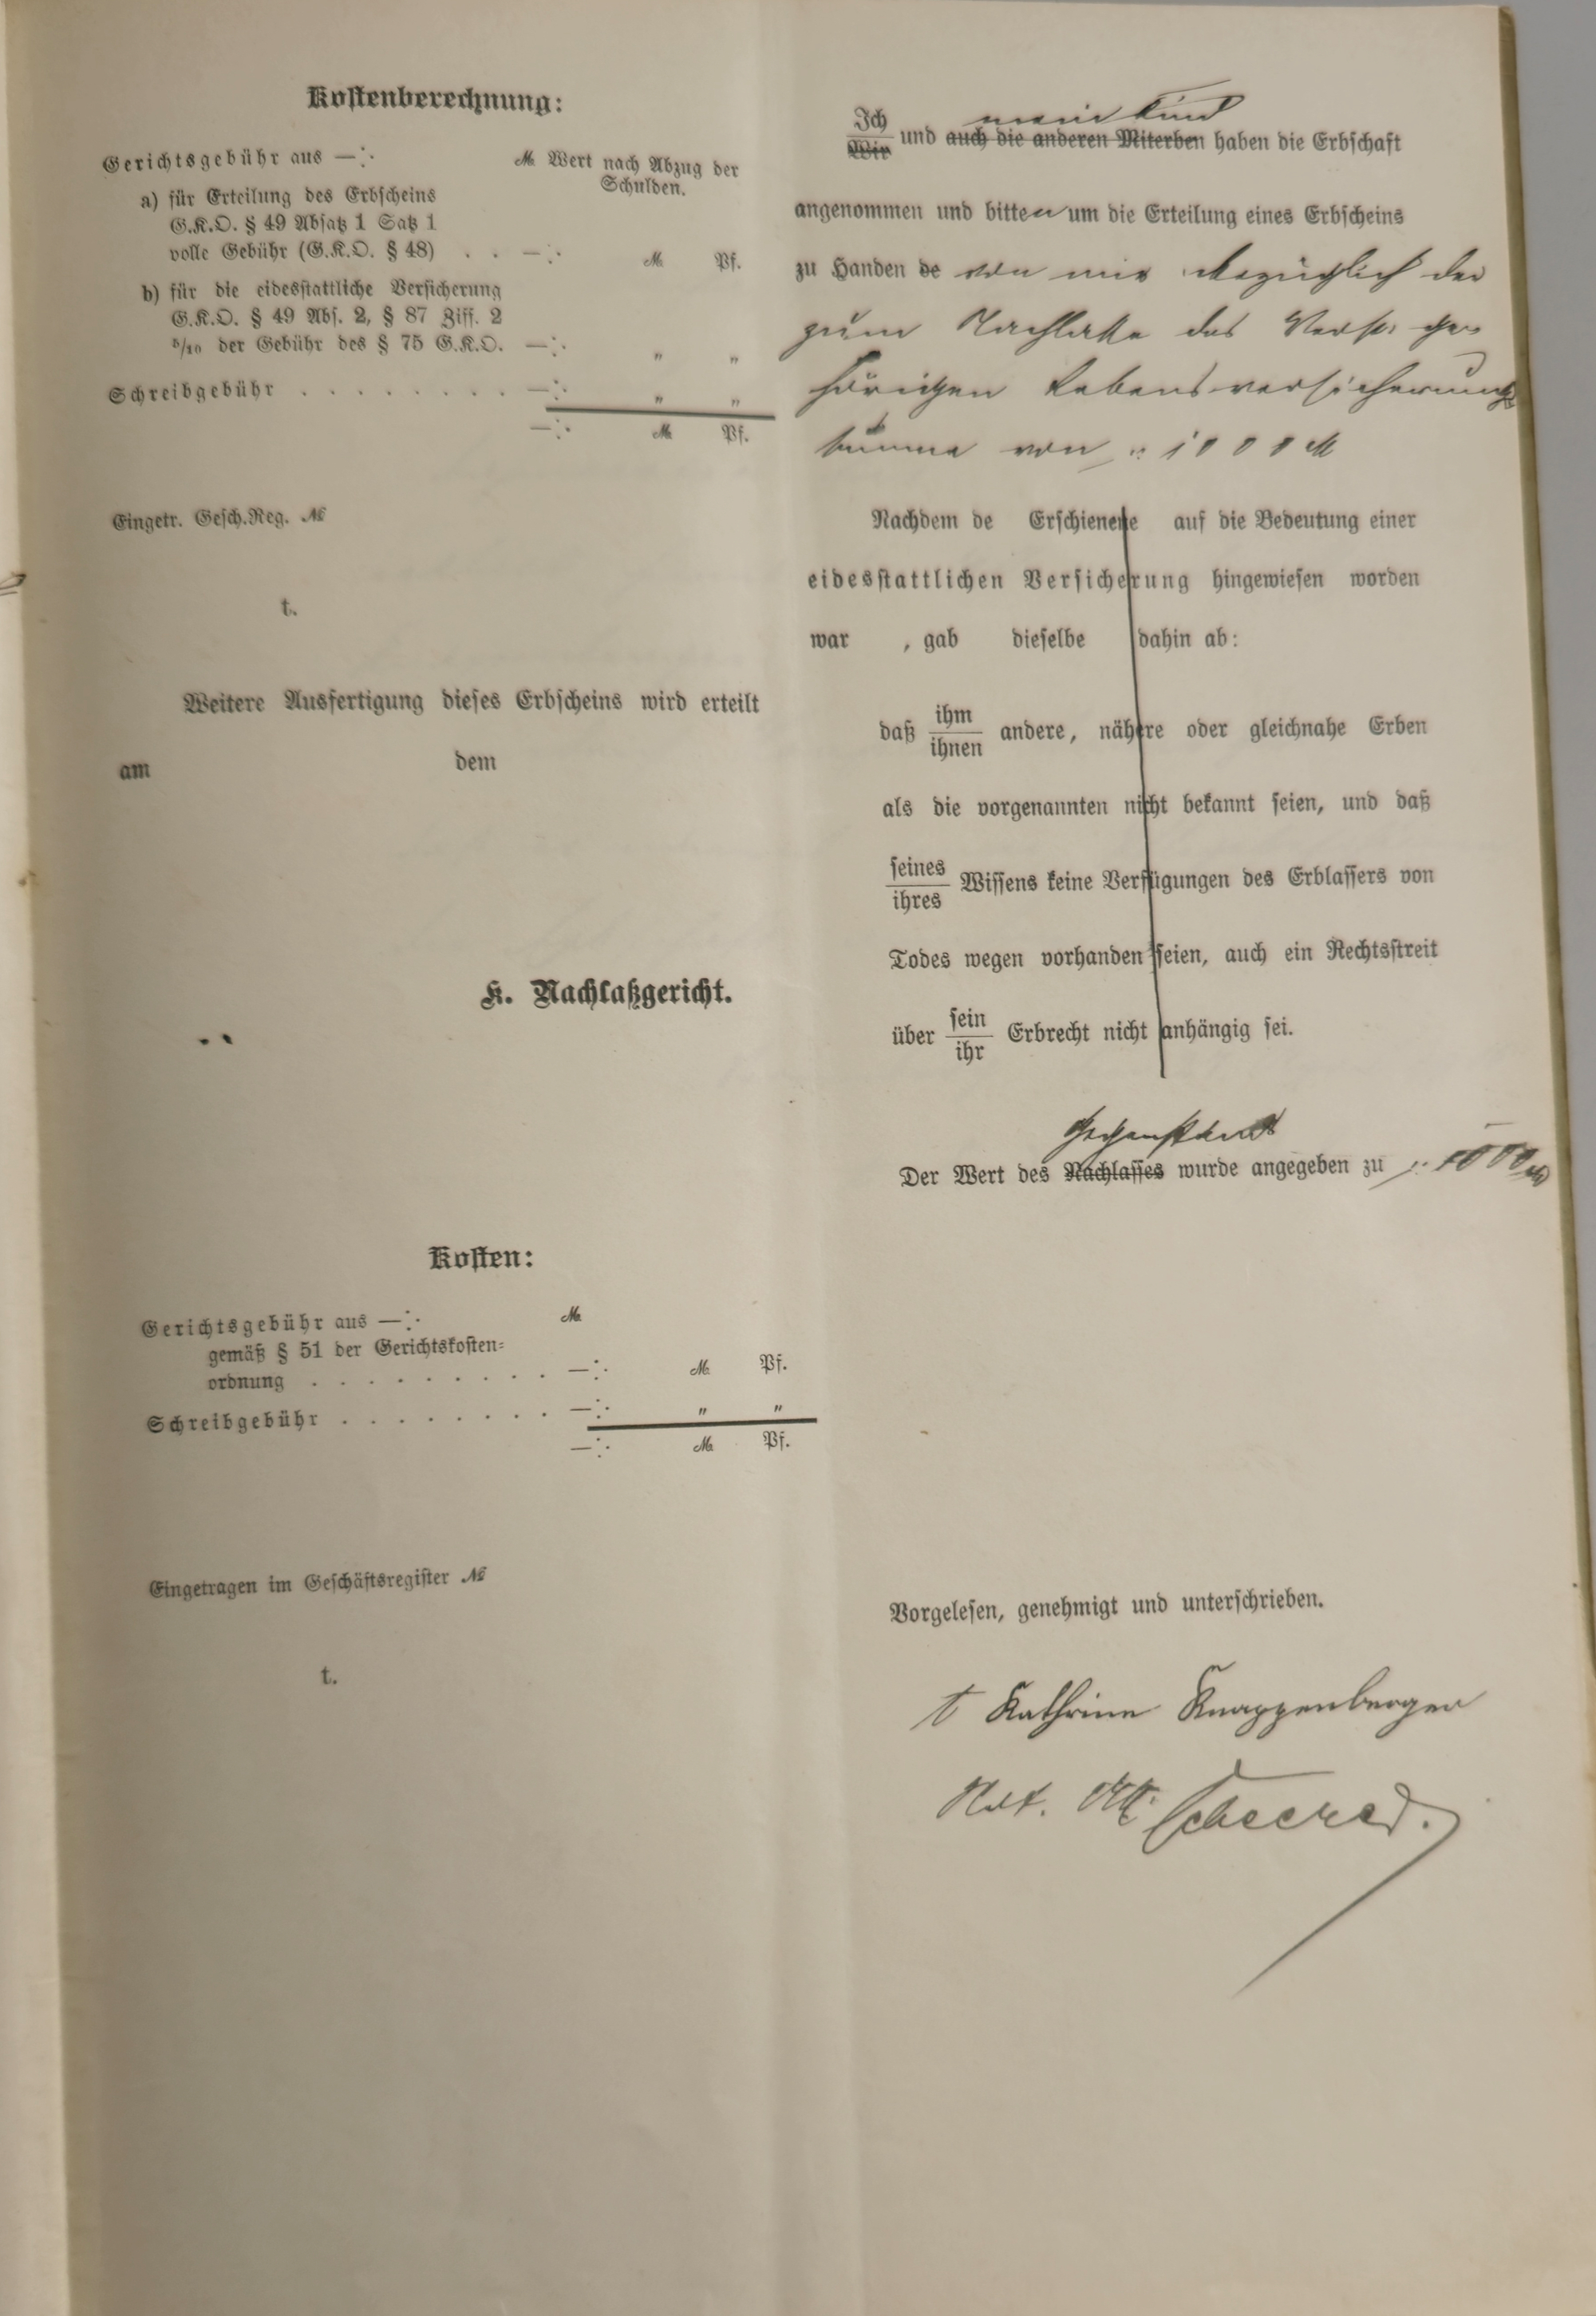 Kostenberechnung:
Gerichtsgebühr aus —∴ M Wert nach Abzug der
Schulden.
a) für Erteilung des Erbscheins
G.K.O. § 49 Absatz 1 Satz 1
volle Gebühr (G.K.O. § 48) . . —∴ M Pf.
b) für die eidesstattliche Versicherung
G.K.O. § 49 Abs. 2, § 87 Ziff. 2
5/10 der Gebühr des § 75 G.K.O. —∴ „ „
Schreibgebühr . . . . . . . . —∴ „ „
—∴ M Pf.
Eingetr. Gesch.Reg. №
t.
Weitere Ausfertigung dieses Erbscheins wird erteilt
am dem
K. Nachlaßgericht.
Kosten:
Gerichtsgebühr aus —∴ M
gemäß § 51 der Gerichtskosten=
ordnung . . . . . . . . . —∴ M Pf.
Schreibgebühr . . . . . . . . —∴ „ „
—∴ M Pf.
Eingetragen im Geschäftsregister №
t.
mein Kind
Ich
Wir und auch die anderen Miterben haben die Erbschaft
angenommen und bitten um die Erteilung eines Erbscheins
zu Handen de von mir bezüglich der
zum Nachlasse des Verst. ge-
hörigen Lebensversicherungs
summe von 1000 M
Nachdem de Erschienene auf die Bedeutung einer
eidesstattlichen Versicherung hingewiesen worden
war , gab dieselbe dahin ab:
daß ihm
ihnen andere, nähere oder gleichnahe Erben
als die vorgenannten nicht bekannt seien, und daß
seines
ihres Wissens keine Verfügungen des Erblassers von
Todes wegen vorhanden seien, auch ein Rechtsstreit
über sein
ihr Erbrecht nicht anhängig sei.
Gegenstands
Der Wert des Nachlasses wurde angegeben zu 1000 M
Vorgelesen, genehmigt und unterschrieben.
Kathrine Knappenberger
Not.